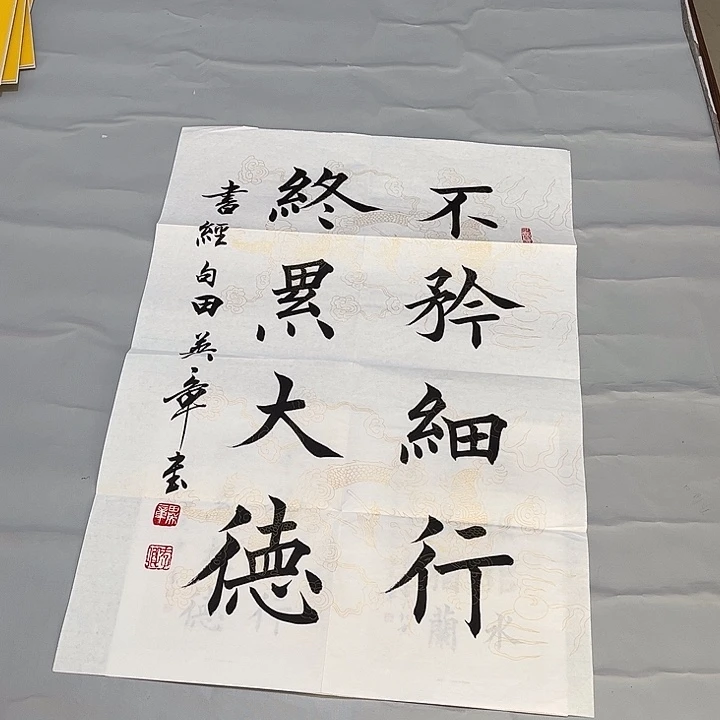 不矜細行
終累大德
書經句田英章書